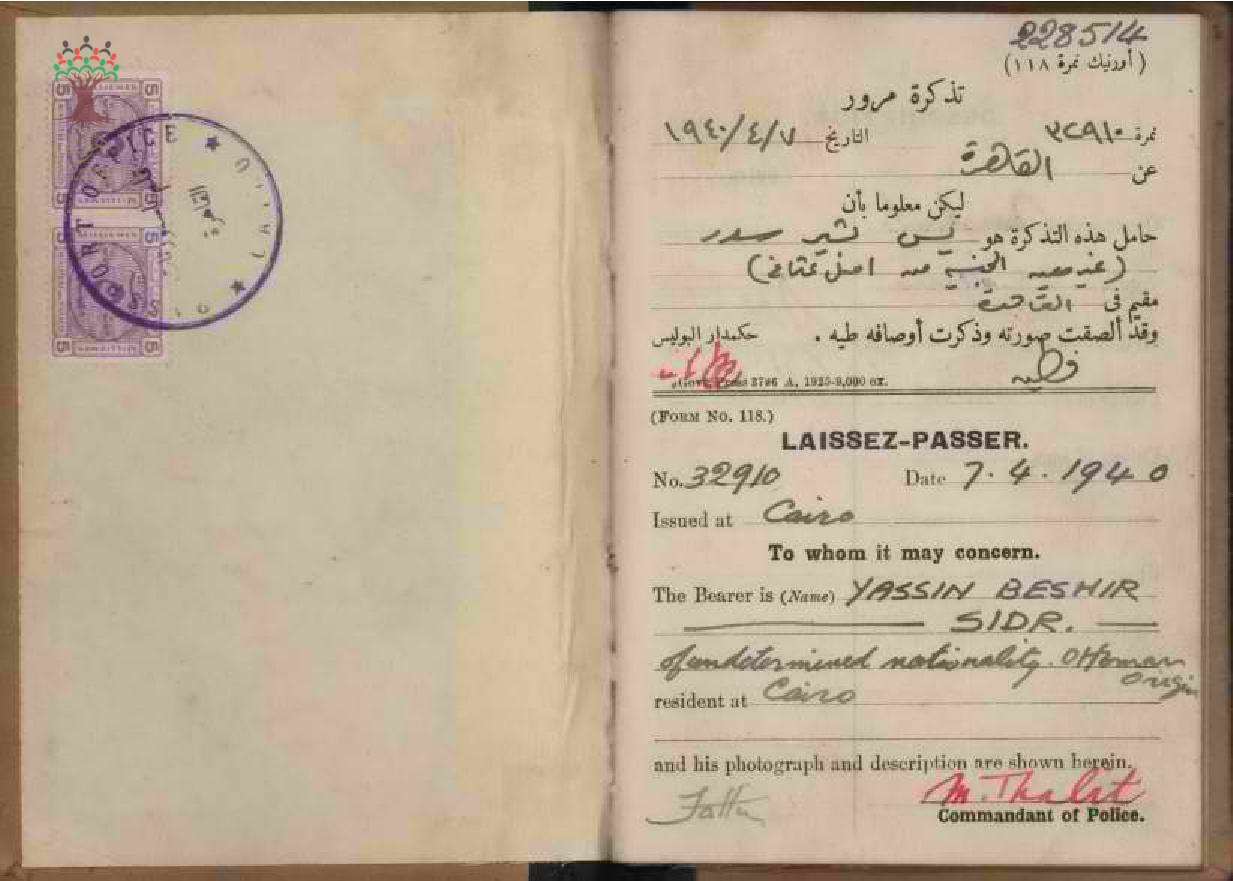 5 MILLIEMES 5
PORT OFFICE
القاهرة
5 MILLIEMES 5
228514
(أورنيك نمرة ١١٨)
تذكرة مرور
نمرة ٣٢٩١٠ التاريخ ١٩٤٠/٤/٧
عن القاهرة
ليكن معلوما بأن
حامل هذه التذكرة هو يس بشير سدر
(غير معين الجنسية من اصل عثماني)
مقيم فى القاهرة
وقد ألصقت صورته وذكرت أوصافه طيه .
حكمدار البوليس
Govt. Press 3796 A, 1925-9,000 ex.
(FORM No. 118.)
LAISSEZ-PASSER.
No. 32910 Date 7.4.1940
Issued at Cairo
To whom it may concern.
The Bearer is (Name) YASSIN BESHIR
SIDR.
of undetermined nationality. Ottoman
Origin
resident at Cairo
and his photograph and description are shown herein.
M. Thalat
Commandant of Police.